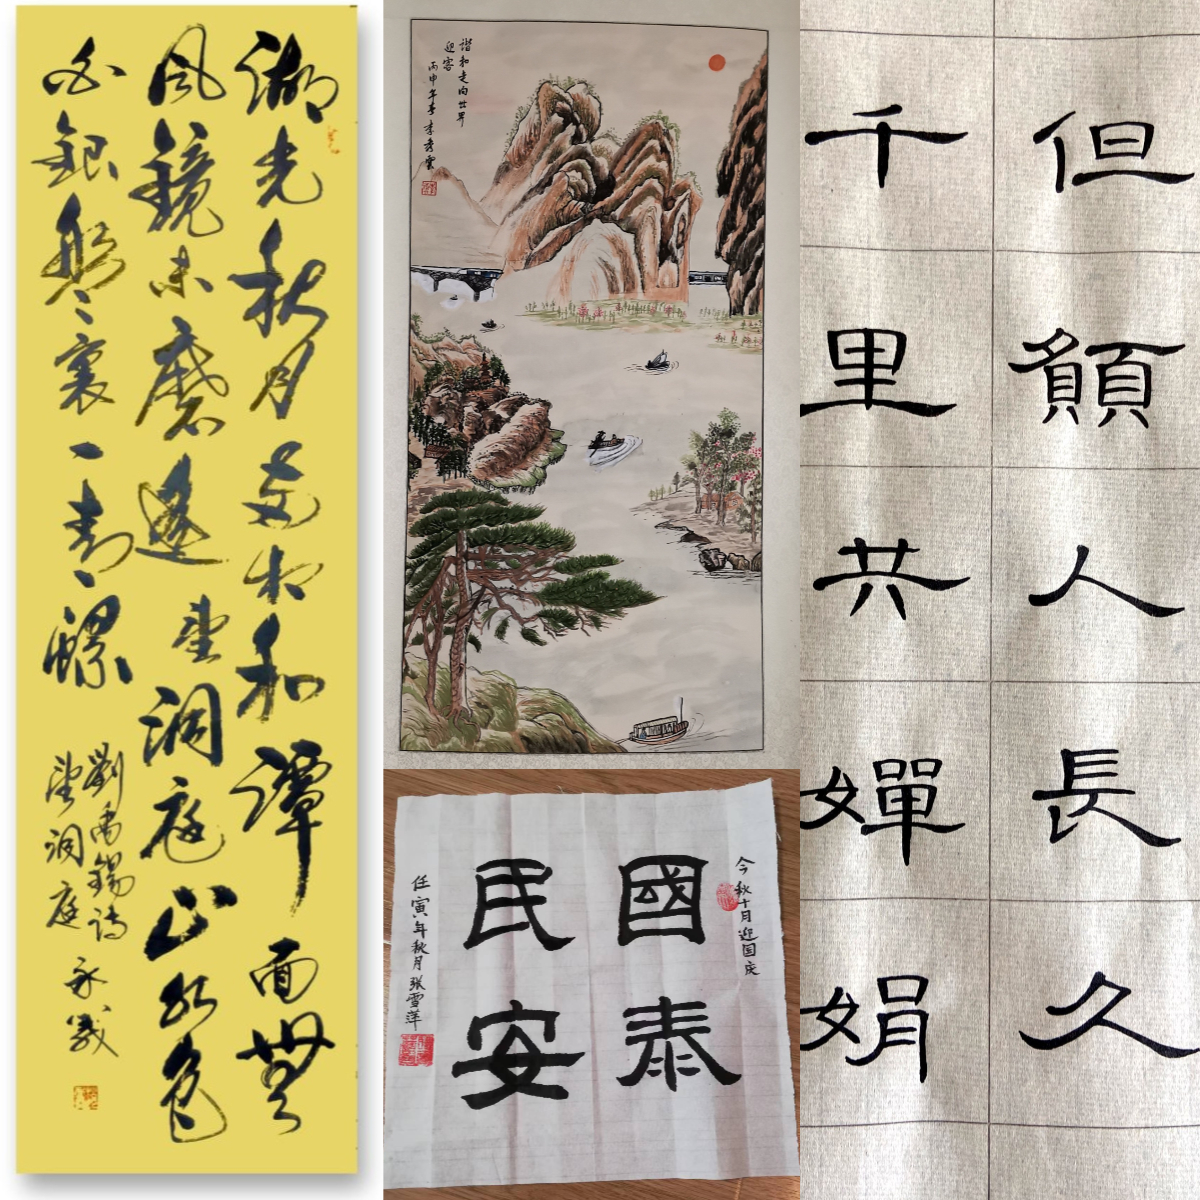 湖光秋月两相和潭面無
風鏡未磨遙望洞庭山水色
白銀盤裏一青螺
劉禹錫詩
望洞庭 永義
諧和走向世界
迎客
丙申年春李秀雲
今秋十月迎国庆
國泰
民安
任寅年秋月张雪萍
但願人長久
千里共嬋娟